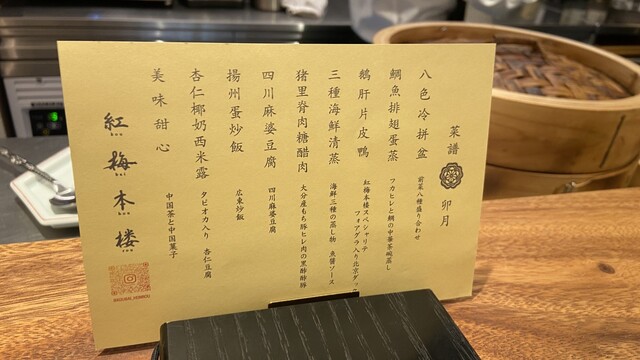 菜譜 卯月
八色冷拼盆 前菜八種盛り合わせ
鯛魚排翅蛋蒸 フカヒレと鯛の中華茶碗蒸し
鵝肝片皮鴨 紅梅本楼スペシャリテ
フォアグラ入り北京ダッ
三種海鮮清蒸 海鮮三種の蒸し物 魚醤ソース
猪里脊肉糖醋肉 大分産もち豚ヒレ肉の黒酢酢豚
四川麻婆豆腐 四川麻婆豆腐
揚州蛋炒飯 広東炒飯
杏仁椰奶西米露 タピオカ入り 杏仁豆腐
美味甜心 中国茶と中国菓子
紅梅本楼